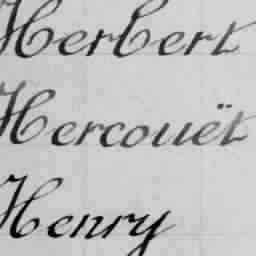 Herbert
Hercouët
Henry